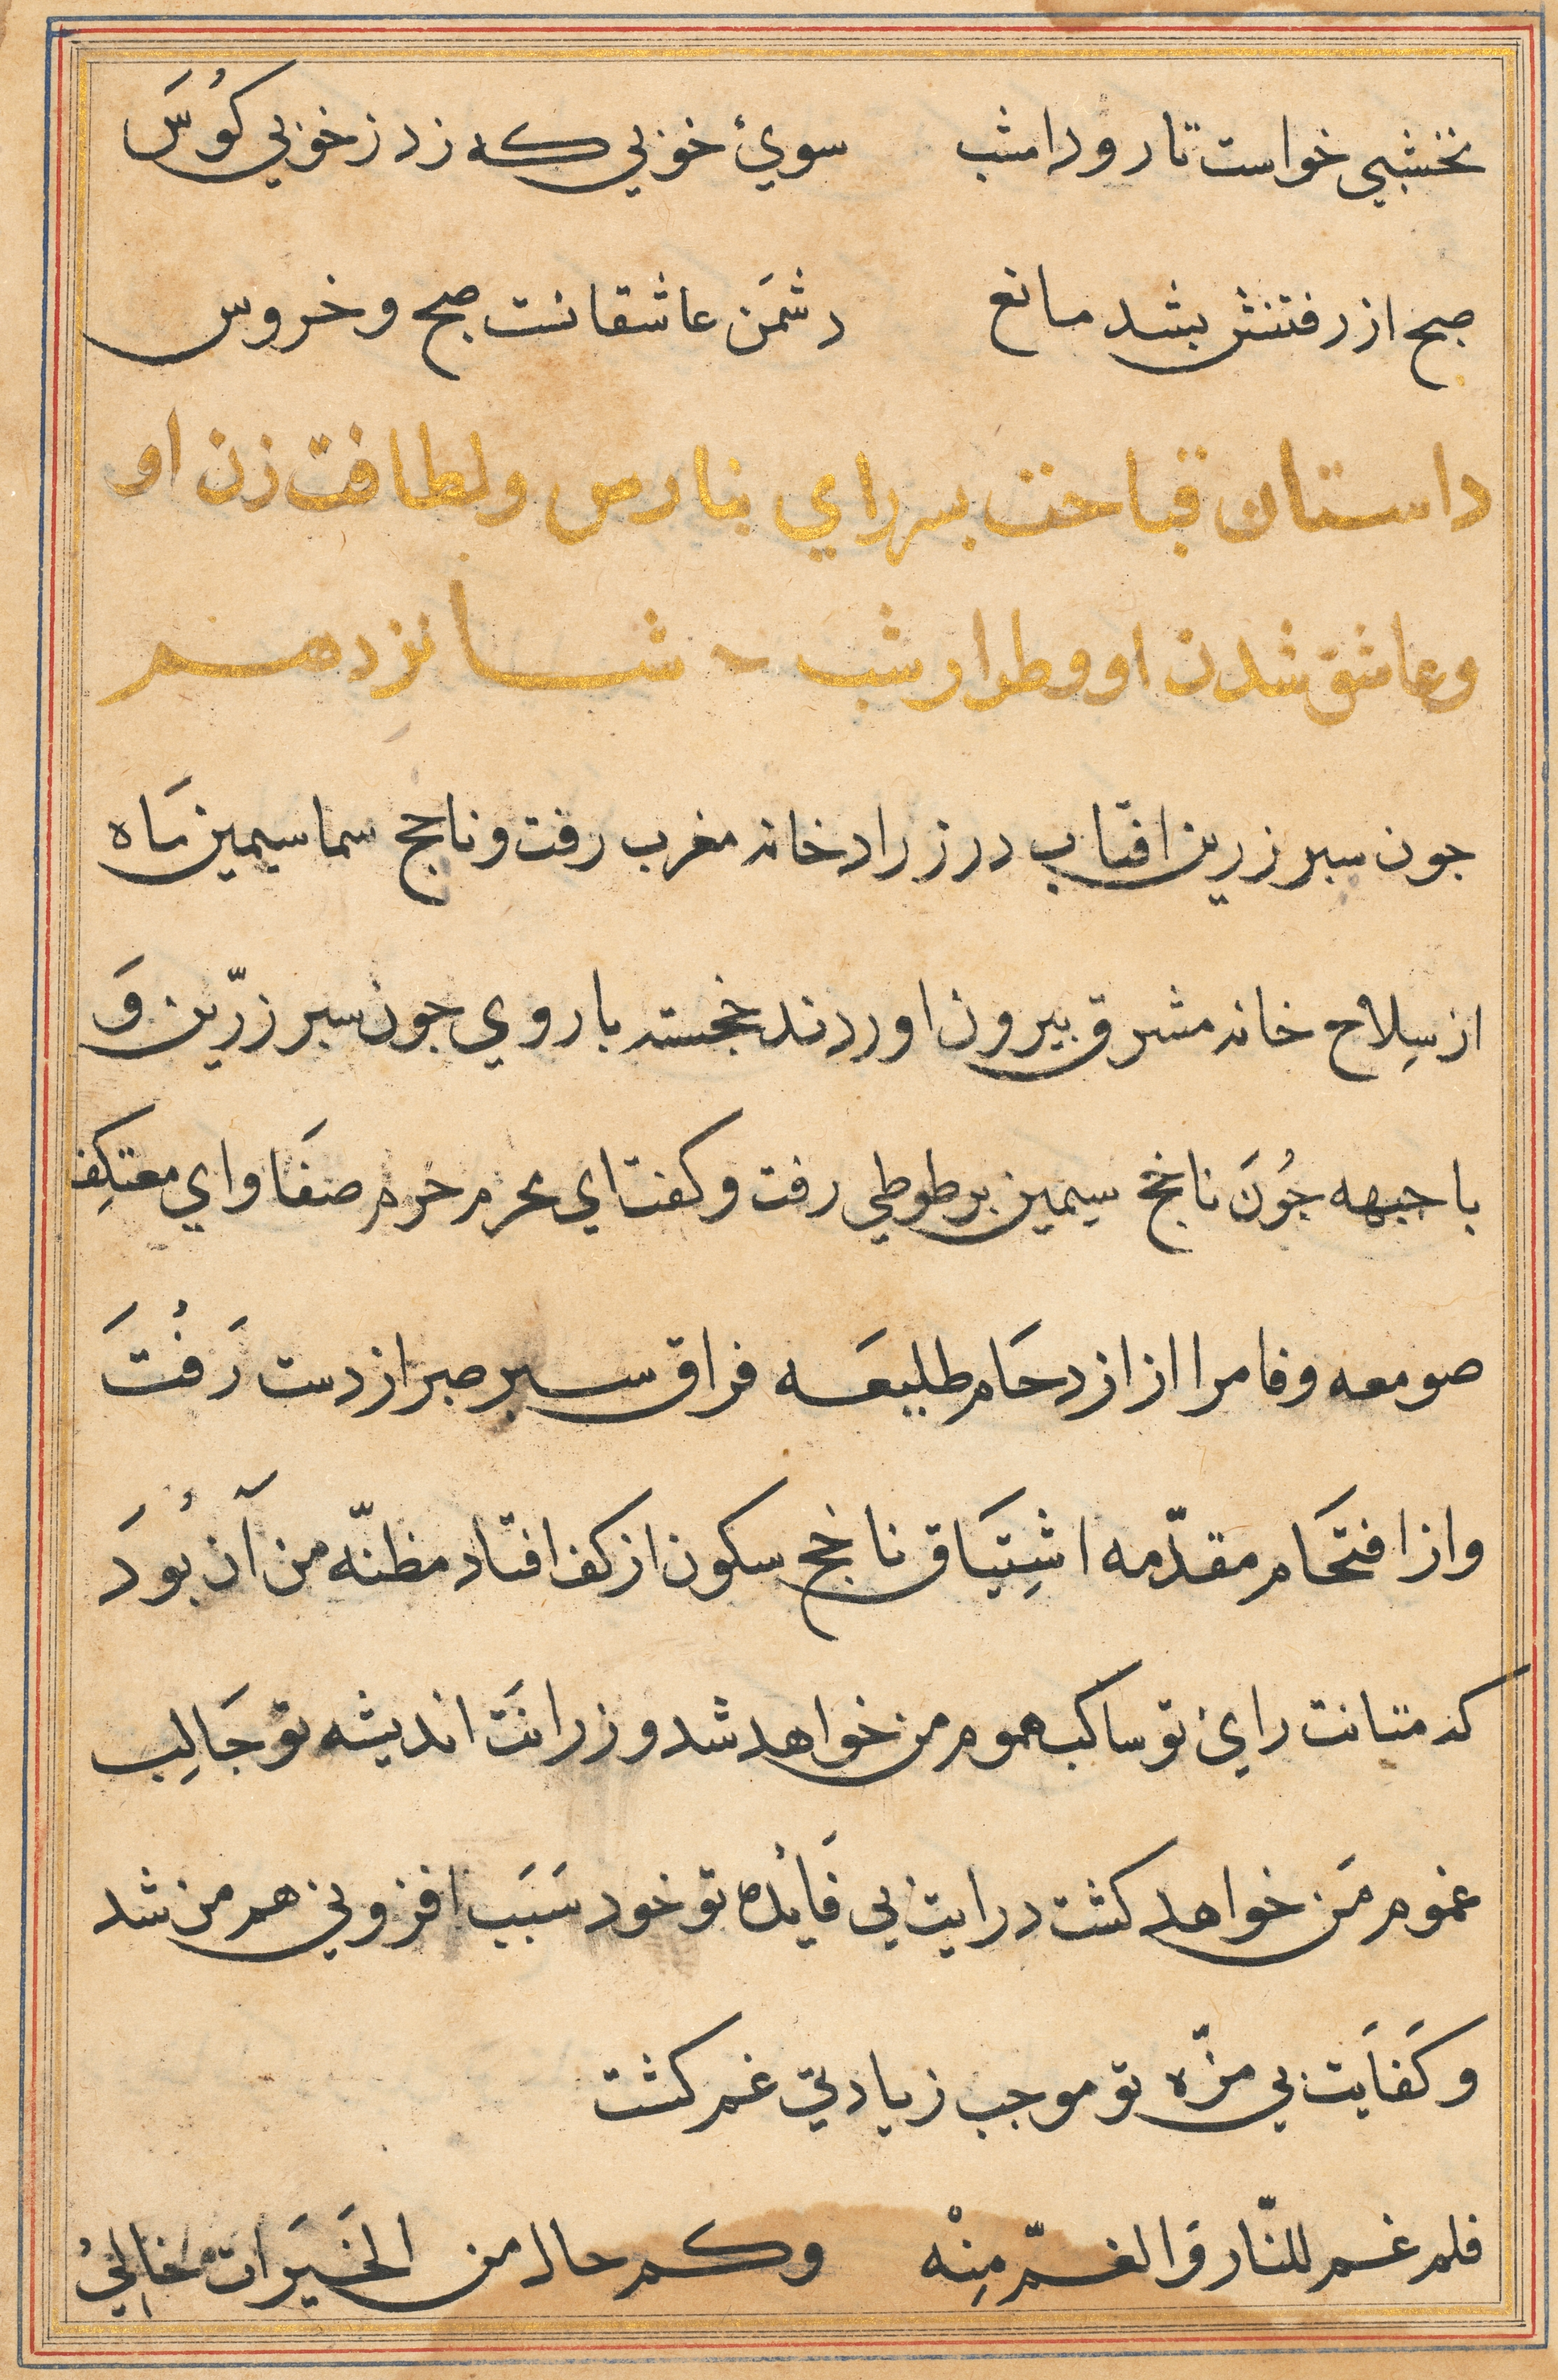 نخشبی خواست تا رود امشب سویٔ خوبی که زد ز خوبی کُوسَ
صبح از رفتنش بشد مانع دشمَن عاشقانست صبح و خروس
داستان قباحت بسر رای بنارس و لطافت زن او
و عاشق شدن او و طرار شب شانزدهم
جون سبر زرین افتاب در زرادخانه مغرب رفت و ناجخ سما سیمین مَاه
از سِلاح خانه مشرق بیرون اوردند خجسته با روی جون سبر زرّین وَ
با جبهه جُونَ ناجخ سیمین بر طوطی رفت و کفت ای محرم حرم صفَا و ای معتکِف
صومعه وفا مرا از ازدحَام طلیعَه فراق سبر صبر از دست رَفْتَ
و از افتحَام مقدّمه اشتِیَاق ناجخ سکون از کف افتاد مظنّه من آن بُودَ
که متانت رایٔ تو ساکب هموم من خواهد شد و زرانَت اندیشه تو جَالِب
غموم مَن خواهد کشت درایت بی فَایْده تو خود سَبَب افزونی هم من شد
و کَفایَت بی مزّه تو موجب زیادتی غم کشت
فلم غم للنّار وَالغمّ مِنْه وکم حال من الخَیَرَات خالِیُ